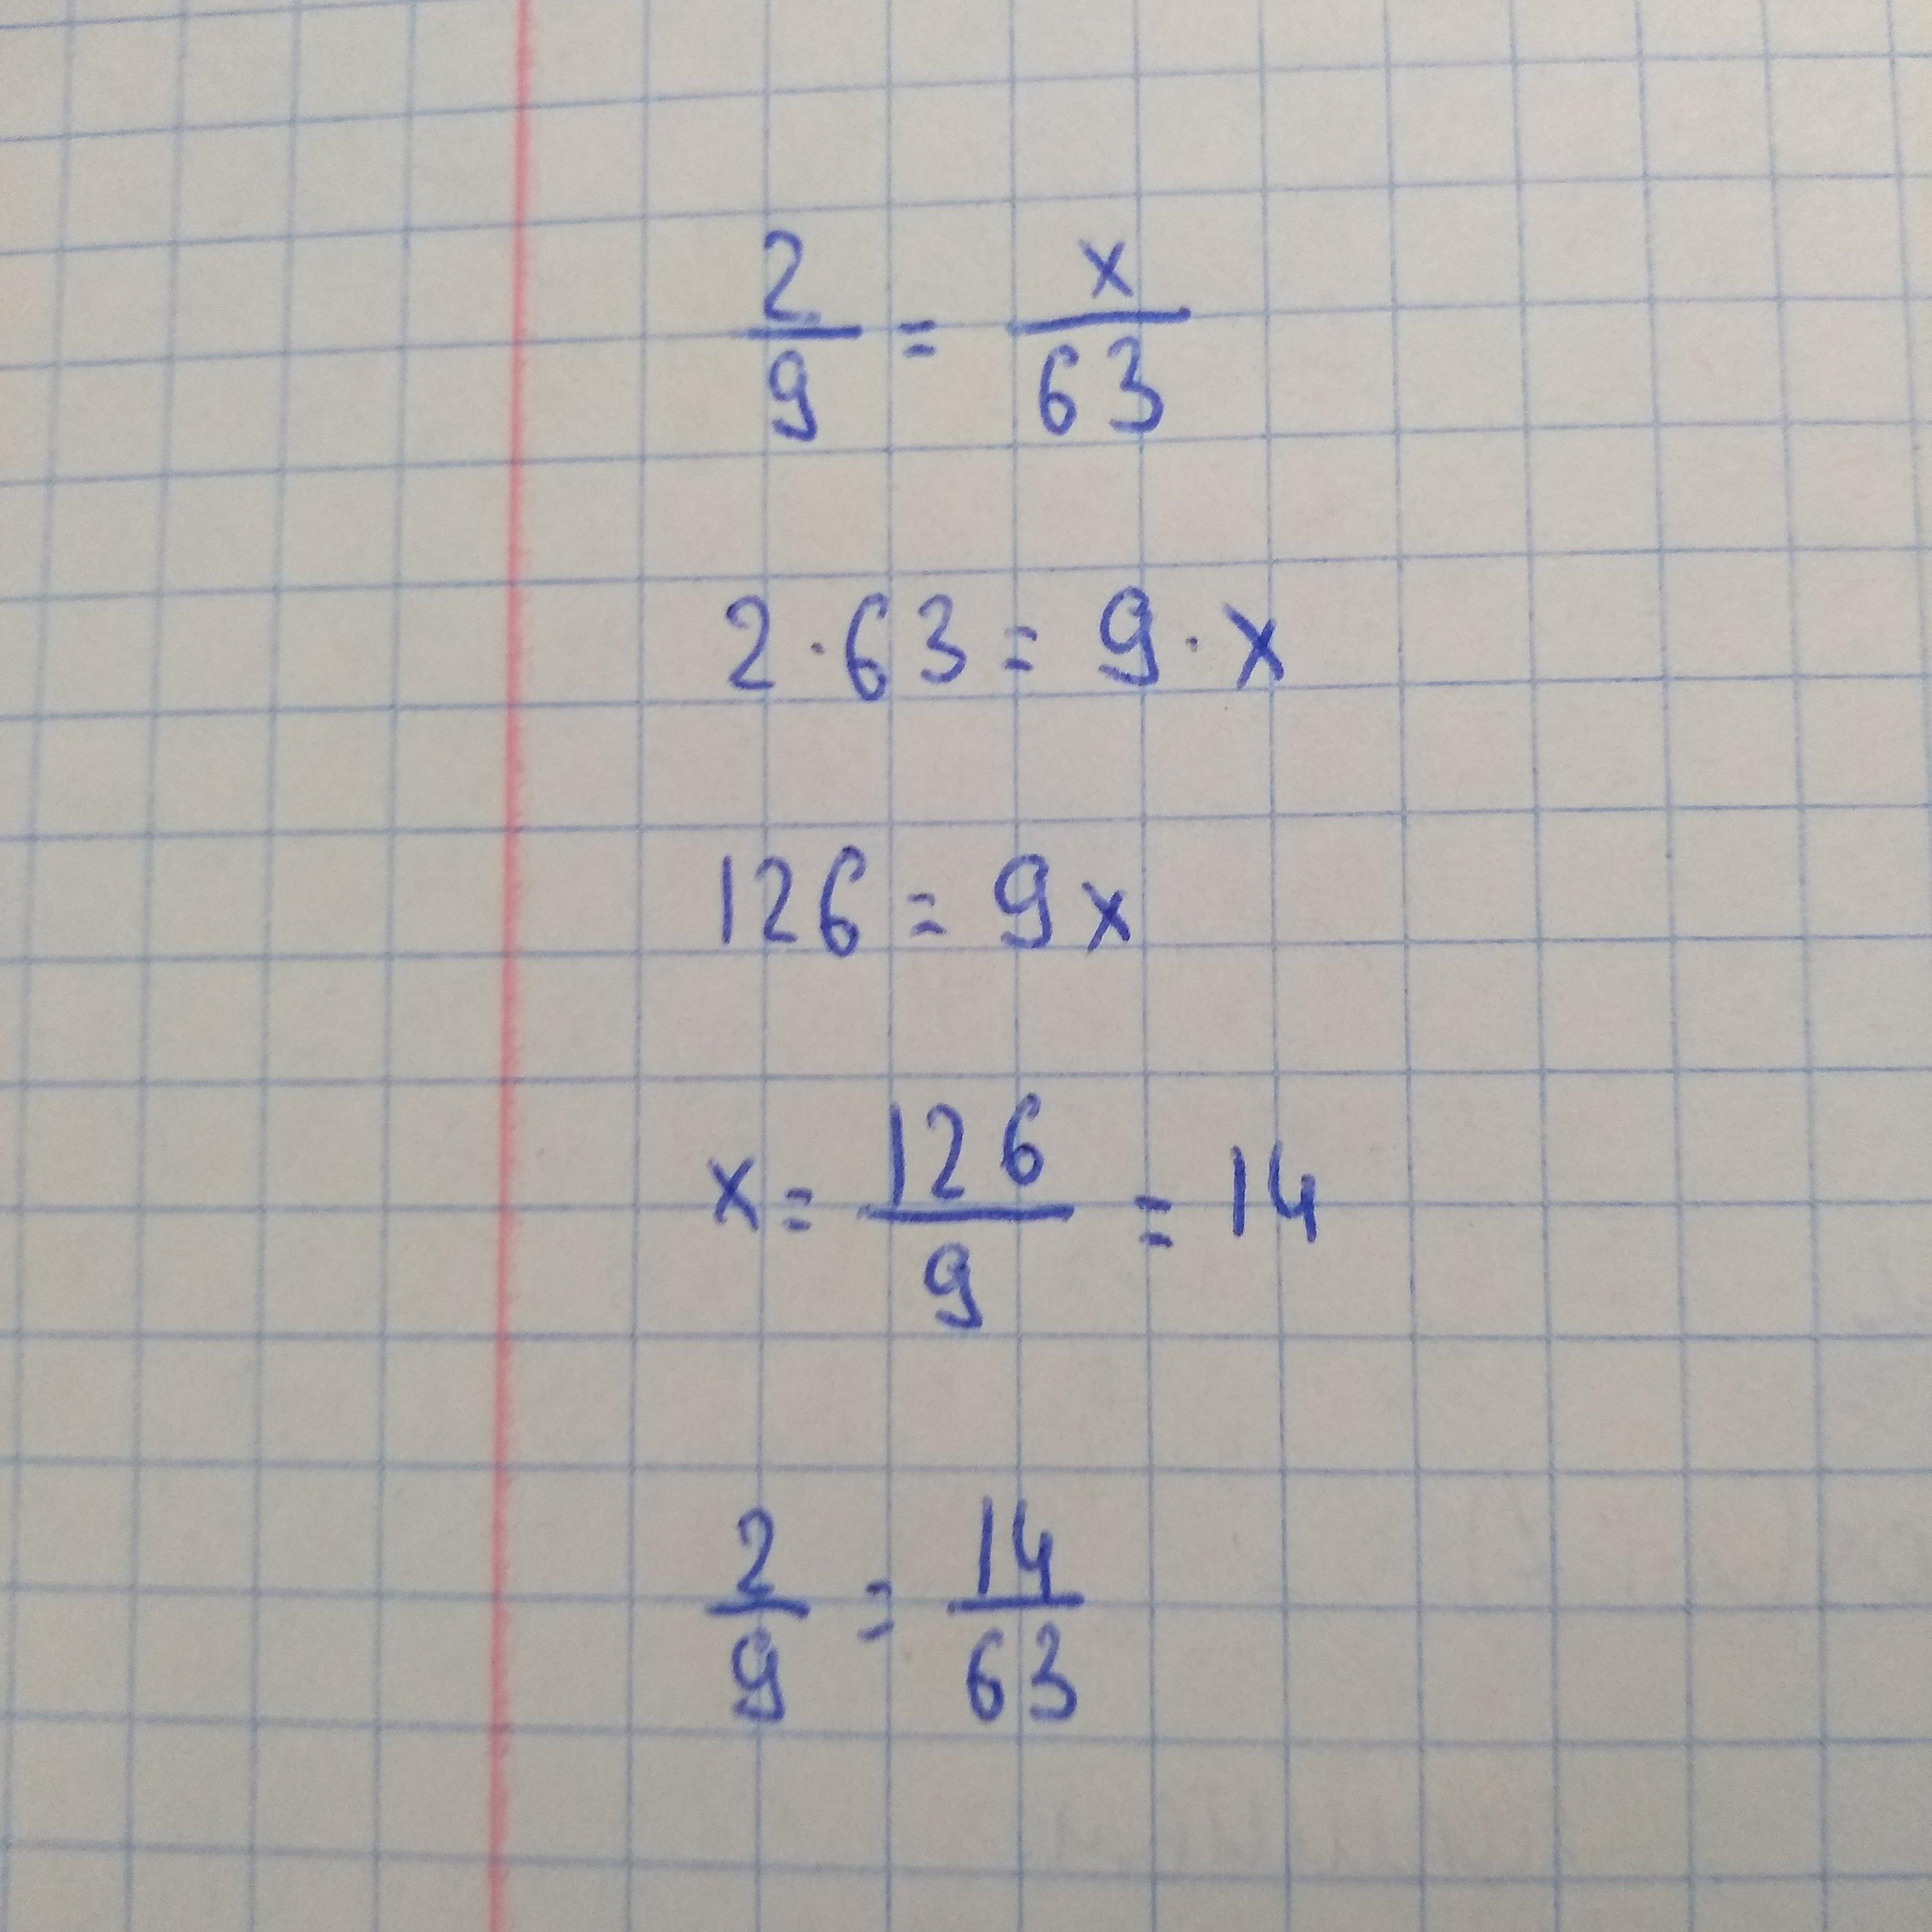 2/9 = x/63
2·63 = 9·x
126 = 9x
x = 126/9 = 14
2/9 = 14/63